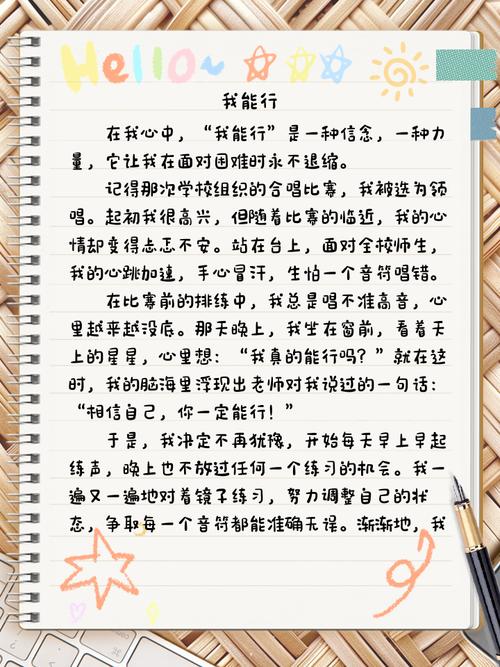 Hello~
我能行
在我心中，“我能行”是一种信念，一种力
量，它让我在面对困难时永不退缩。
记得那次学校组织的合唱比赛，我被选为领
唱。起初我很高兴，但随着比赛的临近，我的心
情却变得忐忑不安。站在台上，面对全校师生，
我的心跳加速，手心冒汗，生怕一个音符唱错。
在比赛前的排练中，我总是唱不准高音，心
里越来越没底。那天晚上，我坐在窗前，看着天
上的星星，心里想：“我真的能行吗？”就在这
时，我的脑海里浮现出老师对我说过的一句话：
“相信自己，你一定能行！”
于是，我决定不再犹豫，开始每天早上早起
练声，晚上也不放过任何一个练习的机会。我一
遍又一遍地对着镜子练习，努力调整自己的状
态，争取每一个音符都能准确无误。渐渐地，我